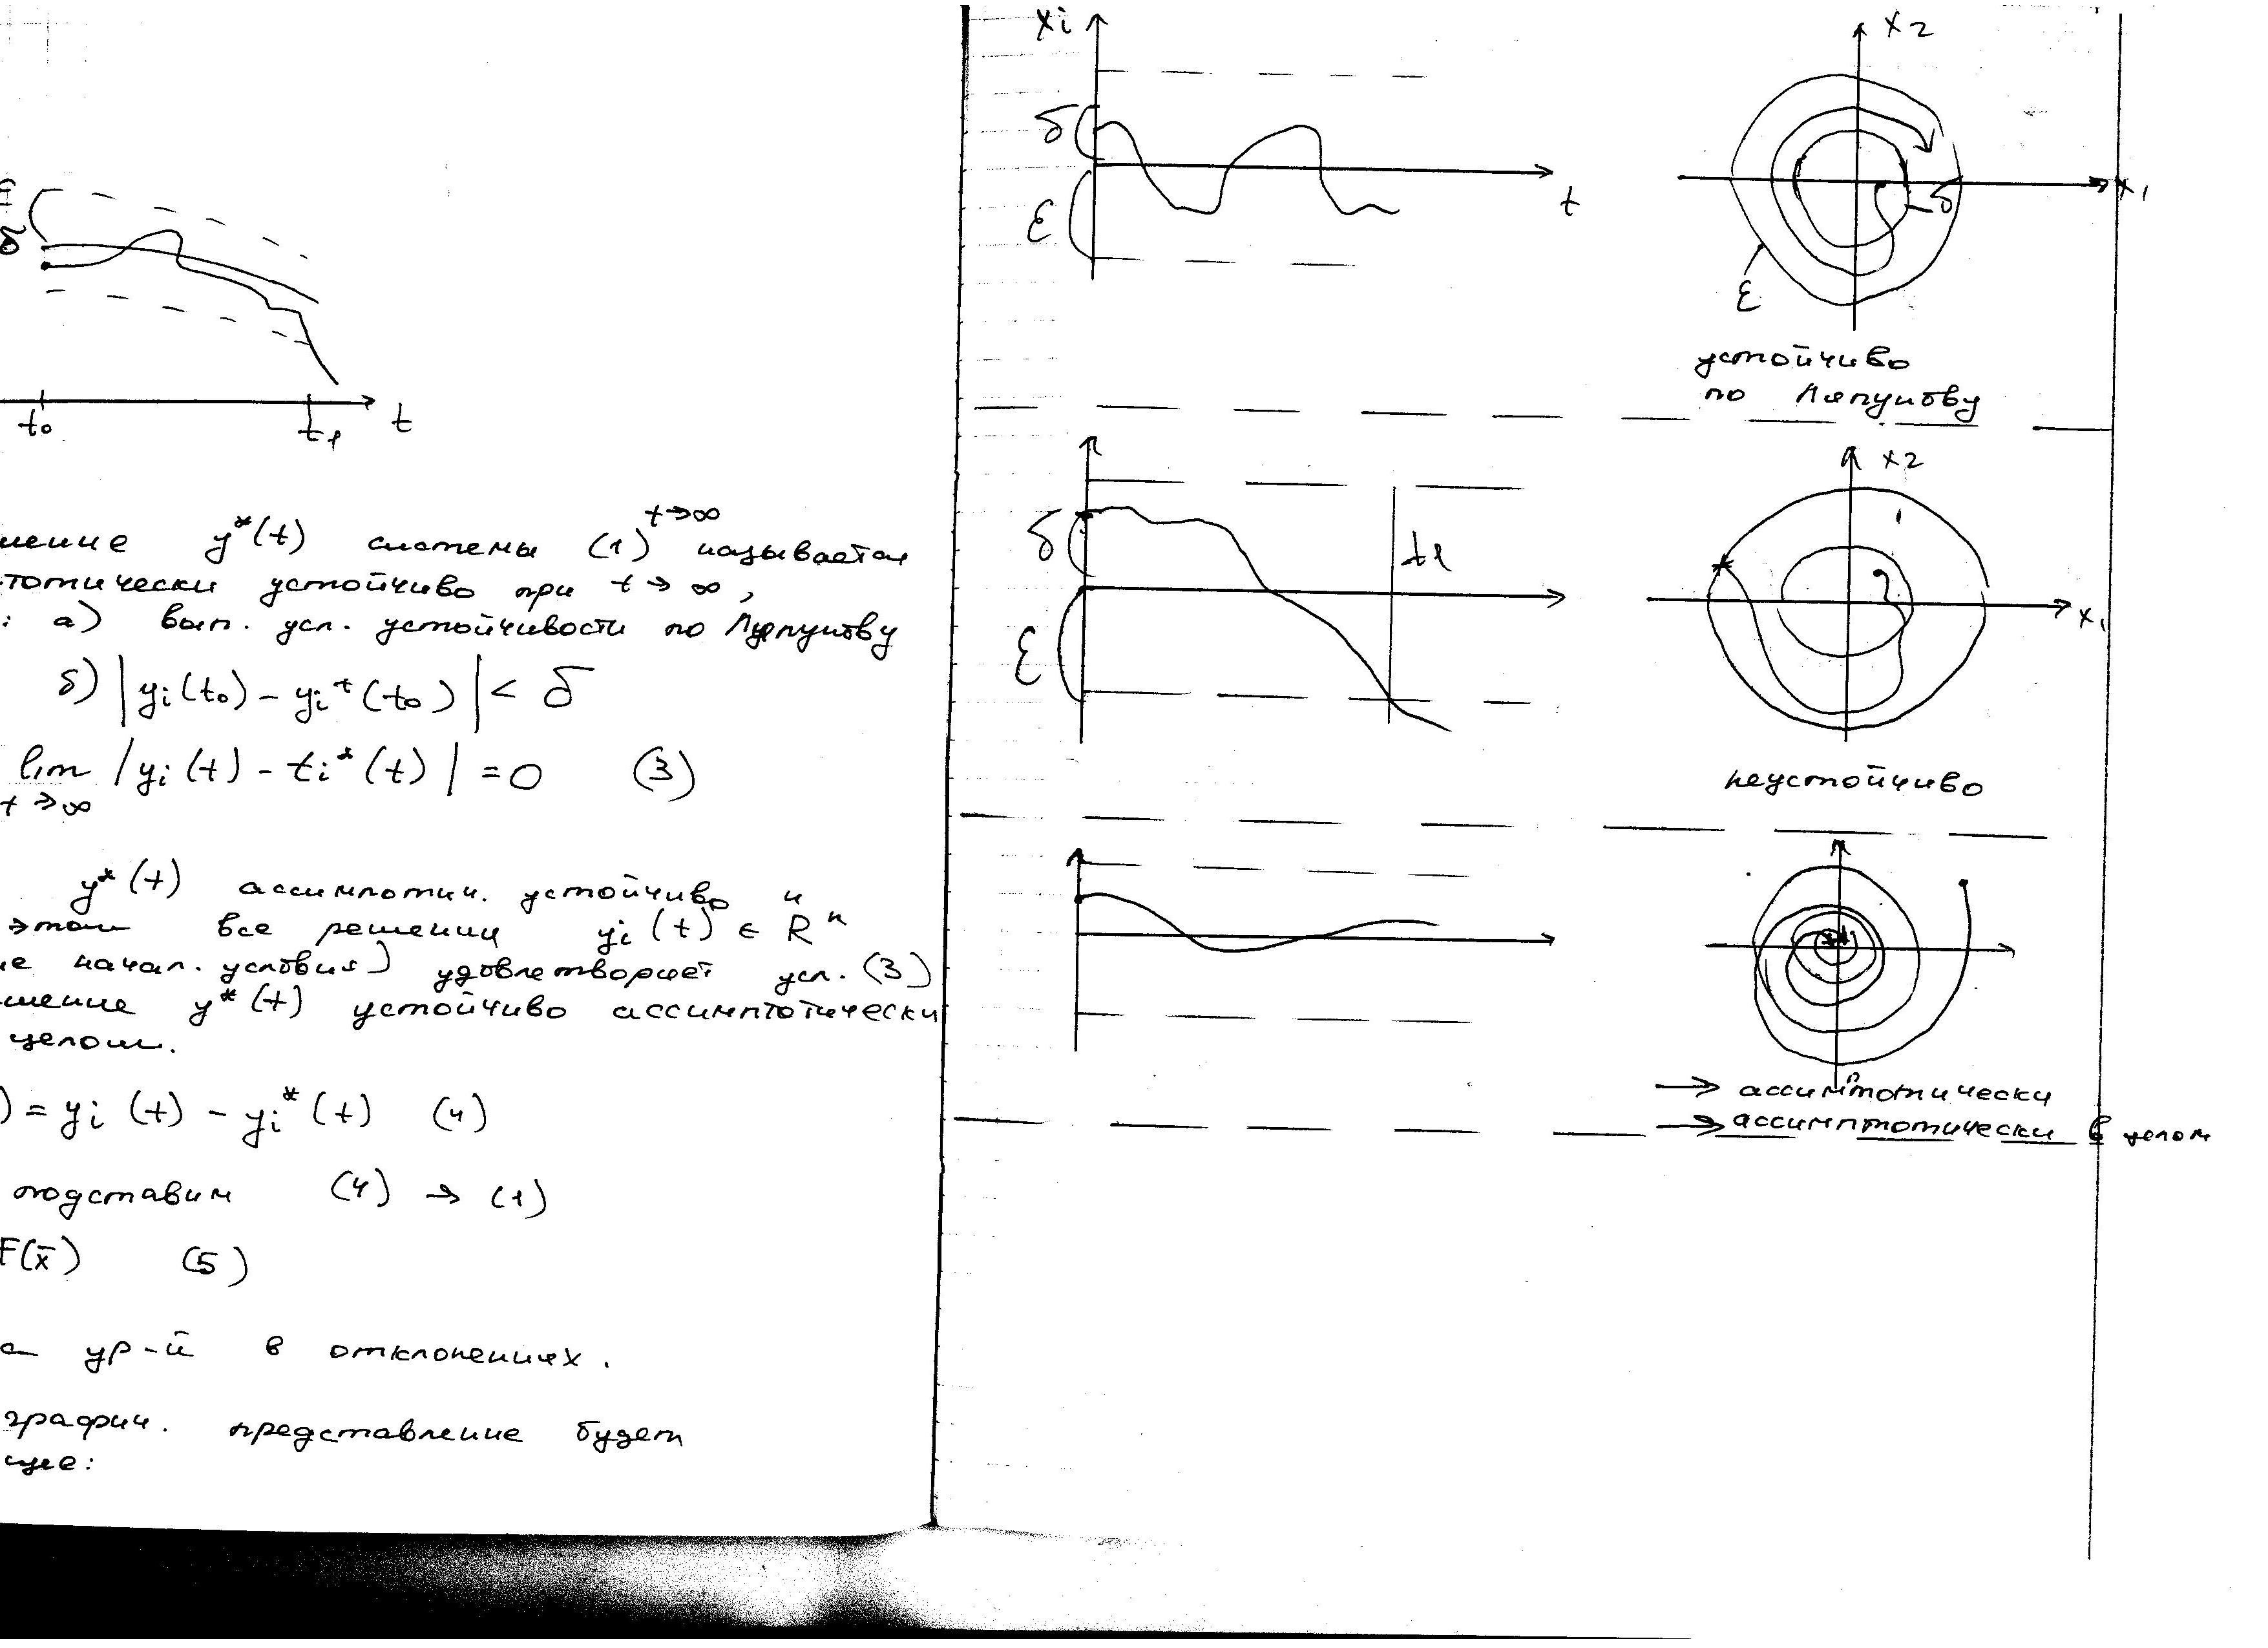 δ
t₀
t₁
t
t→∞
шение y*(t) системы (1) называется
тотически устойчиво при t→∞,
: а) вып. усл. устойчивости по Ляпунову
б) |yᵢ(t₀) - yᵢ*(t₀)| < δ
lim |yᵢ(t) - tᵢ*(t)| = 0 (3)
t→∞
y*(t) ассимптотич. устойчиво и
этом все решения yᵢ(t) ∈ Rⁿ
ие начал. условия) удовлетворяет усл. (3)
шение y*(t) устойчиво ассимптотически
целом.
) = yᵢ(t) - yᵢ*(t) (4)
подставим (4) → (1)
F(x̄) (5)
а ур-й в отклонениях.
графич. представление будет
щее:
xᵢ
δ
ε
t
x₂
x₁
δ
ε
устойчиво
по Ляпунову
δ
ε
t₁
x₂
x₁
неустойчиво
→ ассимптотически
→ ассимптотически в целом